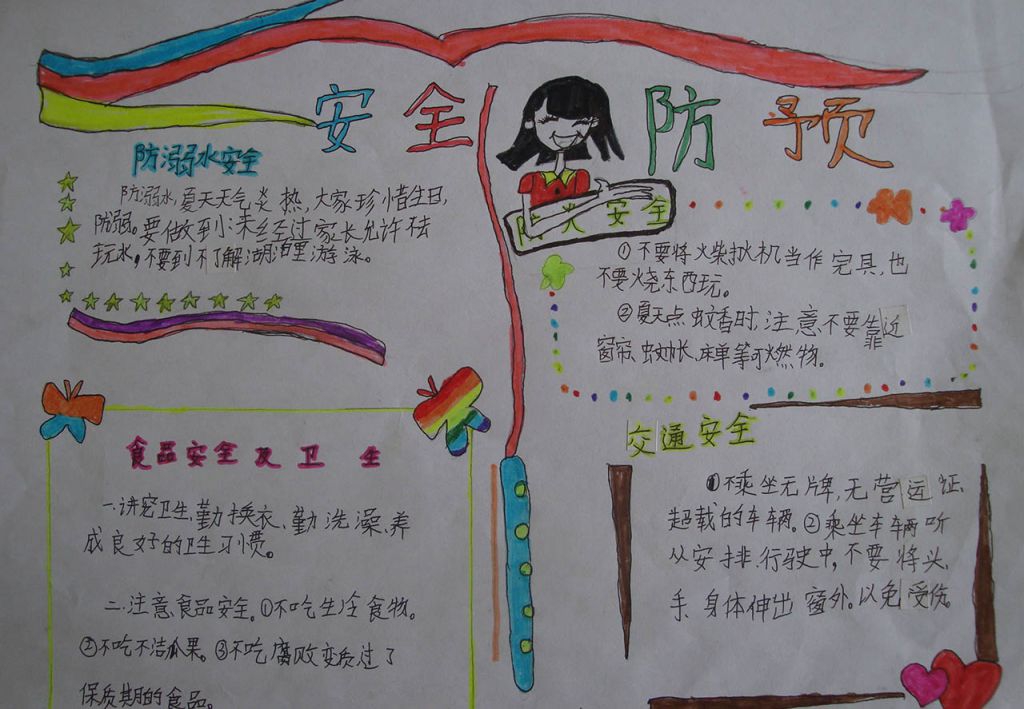 安全防予预
防溺水安全
防溺水,夏天天气炎热,大家珍惜生日,
防弱。要做到:未经过家长允许祛
玩水,不要到不了解湖泊里游泳。
防火安全
①不要将火柴扒机当作完具,也
不要烧东西玩。
②夏天点蚊香时,注意不要靠近
窗帘、蚊帐、床单等可燃物。
食品安全及卫生
一.讲究卫生,勤换衣、勤洗澡、养
成良好的卫生习惯。
二.注意食品安全。①不吃生冷食物。
②不吃不洁瓜果。③不吃腐败变质,过了
保质期的食品。
交通安全
①不乘坐无牌,无营运证、
超载的车辆。②乘坐车辆听
从安排.行驶中,不要将头、
手、身体伸出窗外.以免受伤。